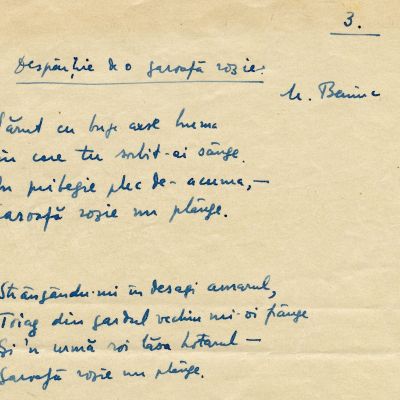 3.
Despărțire de o garoafă roșie.
M. Beniuc
Sărut cu buze arse huma
din care tu sorbit-ai sânge.
În pribegie plec de-acuma,—
Garoafă roșie nu plânge.
Strângându-mi în desagi amarul,
Toiag din gardul vechiu mi-oi frânge
Și 'n urmă voi lăsa hotarul—
Garoafă roșie nu plânge.